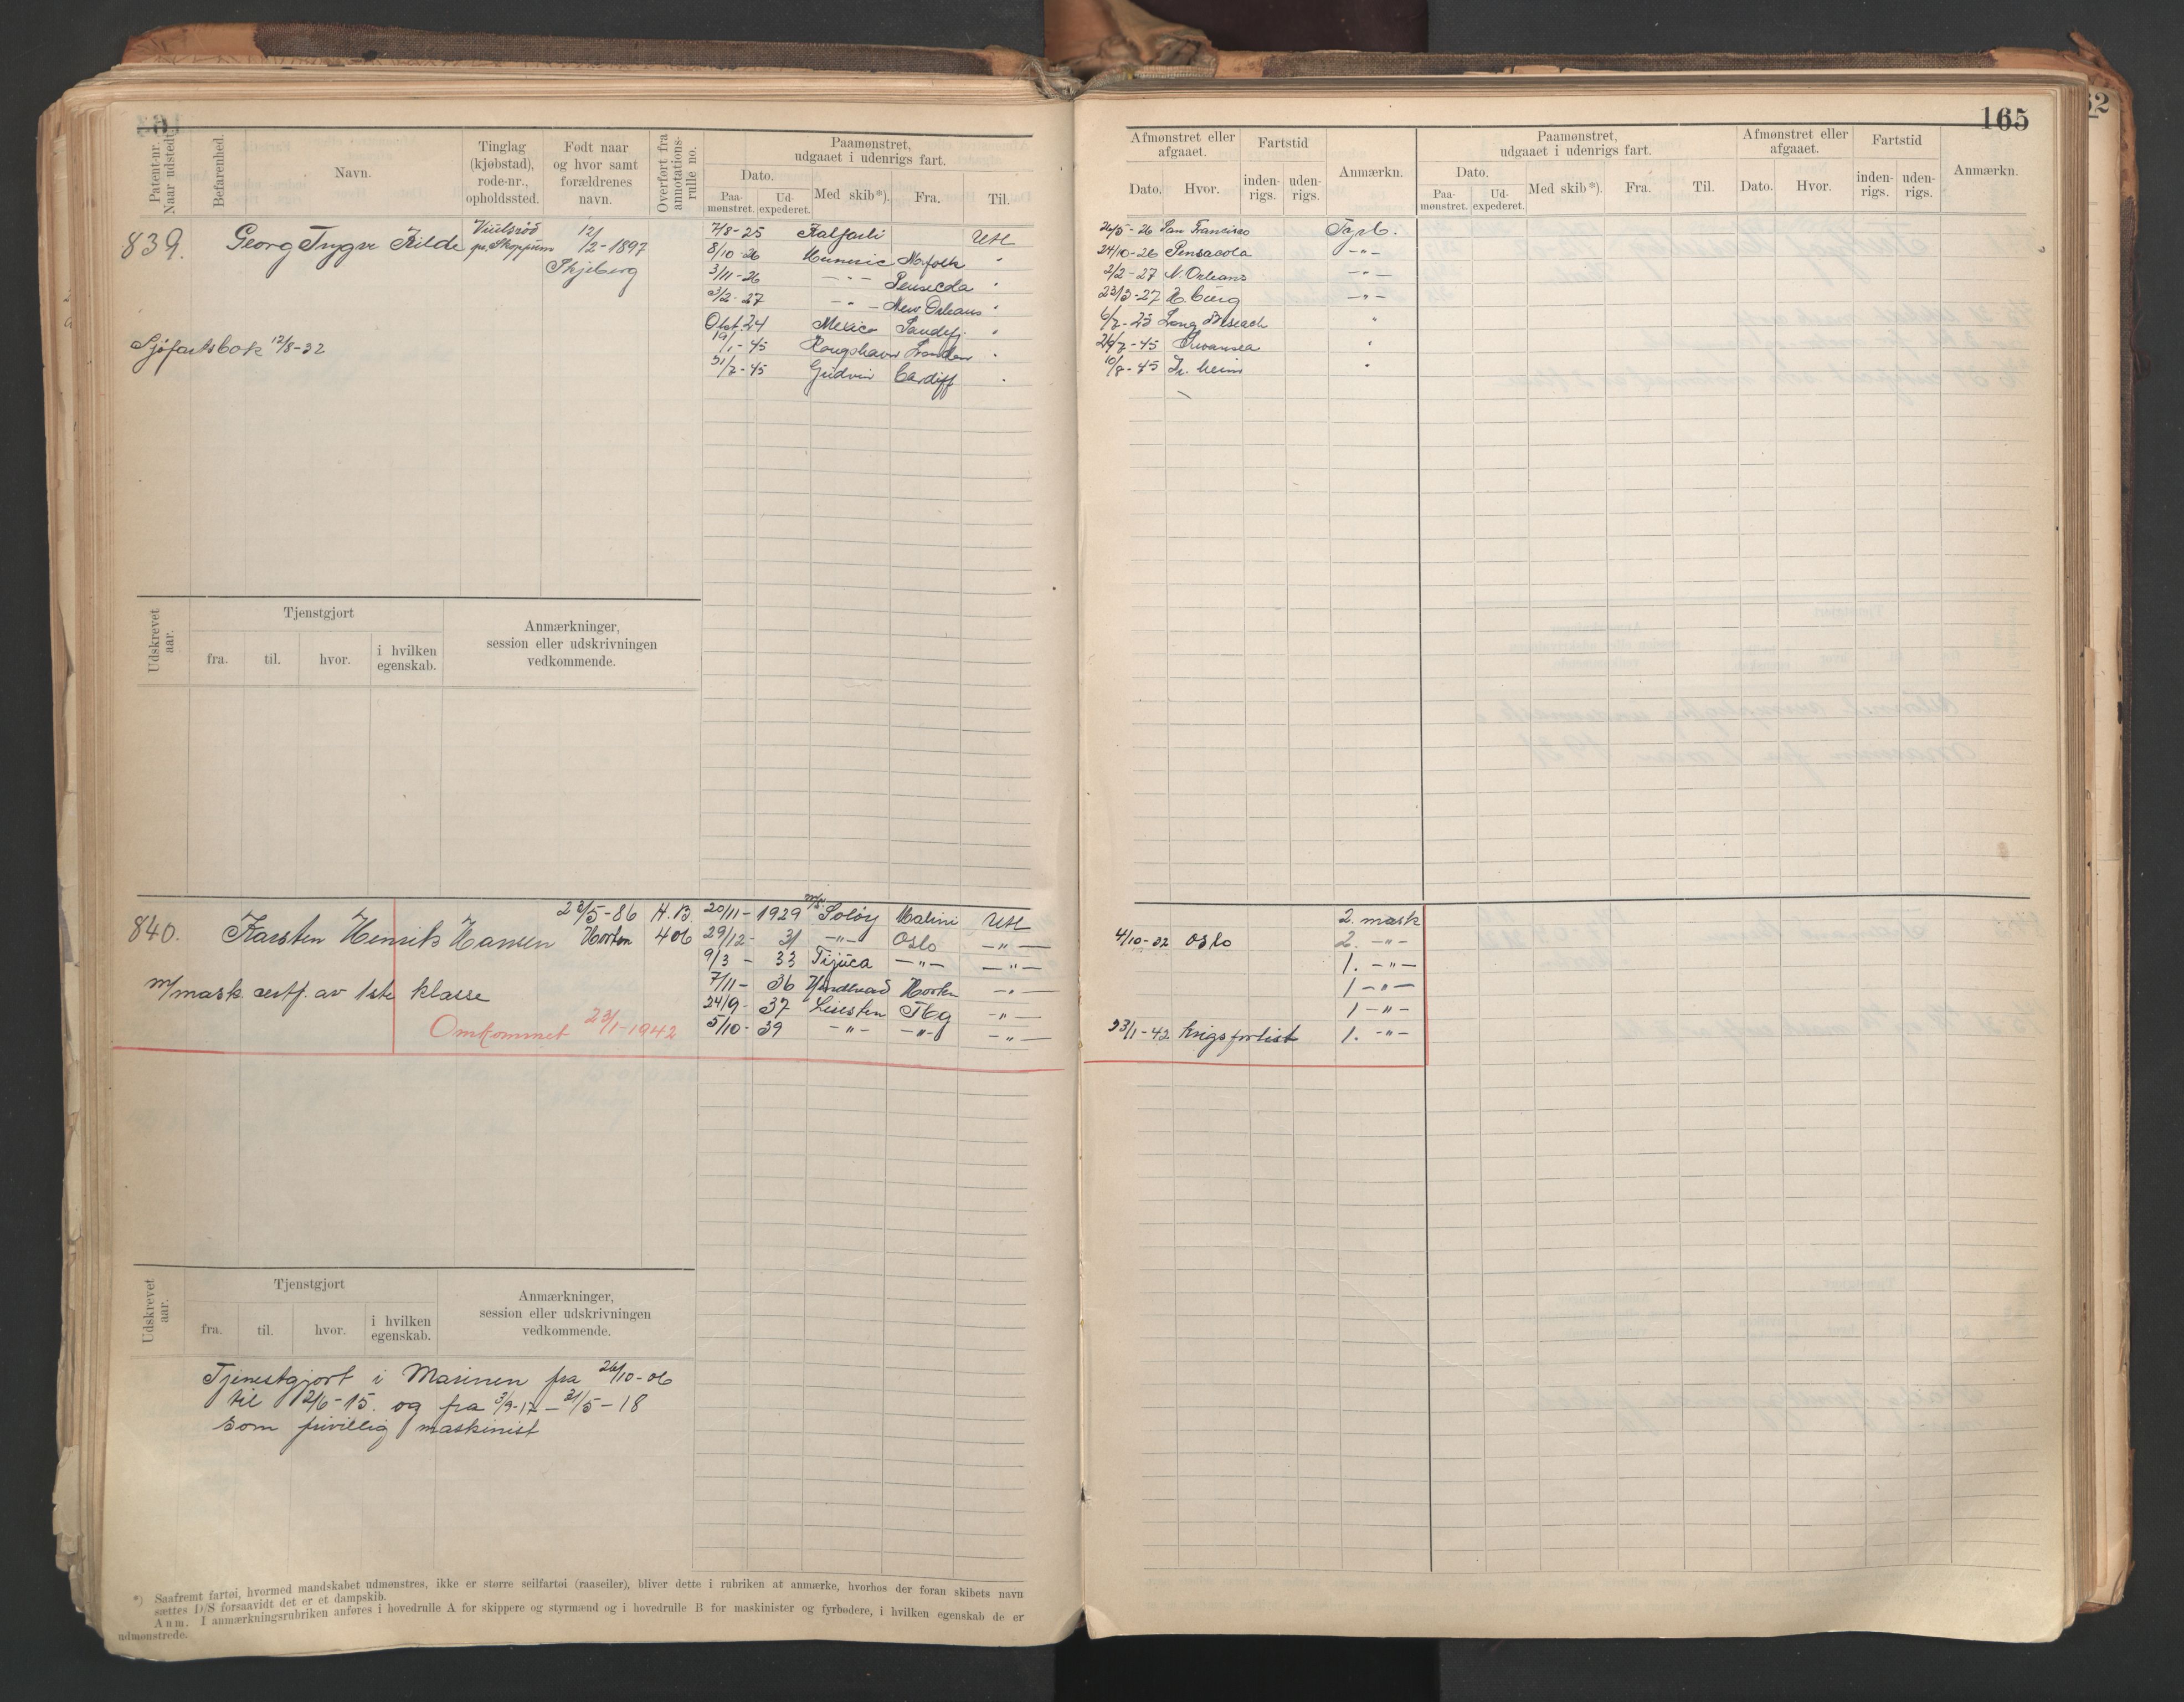 165
Patent-nr. Naar udstedt.
Befarenhed.
Navn.
Tinglag (kjøbstad), rode-nr., opholdssted.
Født naar og hvor samt forældrenes navn.
Overført fra annotations-rulle no.
Paamønstret, udgaaet i udenrigs fart.
Dato.
Paa-mønstret.
Ud-expederet.
Med skib*).
Fra.
Til.
Afmønstret eller afgaaet.
Dato.
Hvor.
Fartstid
inden-rigs.
uden-rigs.
Anmærkn.
Paamønstret, udgaaet i udenrigs fart.
Dato.
Paa-mønstret.
Ud-expederet.
Med skib*).
Fra.
Til.
Afmønstret eller afgaaet.
Dato.
Hvor.
Fartstid
inden-rigs.
uden-rigs.
Anmærkn.
839. Georg Trygve Kilde pr. Skoppum 12/2-1897 Skjeberg
Sjøfartsbok 12/8-32
7/8-25 Utl
8/10-26 Muneric N.folk "
3/11-26 -"- "
3/2-27 -"- New Orleans "
Okt. 24 Mexico Sandefj. "
1-45 London "
31/7-45 Gudvin Cardiff "
26 San Francisco Fyrb.
24/10-26 Pensacola -"-
2/2-27 N. Orleans -"-
23/3-27 -"-
25 Long Beach "
45 Swansea "
10/8-45 Tr. heim "
Udskrevet aar.
Tjenstgjort
fra.
til.
hvor.
i hvilken egenskab.
Anmærkninger, session eller udskrivningen vedkommende.
840. Karsten Henrik Hansen 23/5-86 Horten H.B. 406
m/mask. sertf. av 1ste klasse
Omkommet 23/1-1942
20/11-1929 m/s Soløy Utl
29/12-31 -"- Oslo -"-
9/3-33 Tijuca -"- -"-
7/11-36 Horten -"-
24/9-37 Leiesten Tbg -"-
5/10-39 -"- -"- -"-
2. mask
4/10-32 Oslo 2. -"-
1. -"-
1 -"-
1 -"-
23/1-42 krigsforlist 1. -"-
Udskrevet aar.
Tjenstgjort
fra.
til.
hvor.
i hvilken egenskab.
Anmærkninger, session eller udskrivningen vedkommende.
Tjenestgjort i Marinen fra 26/10-06
til 2/6-15. og fra 3/9-17 - 31/5-18
som frivillig maskinist
*) Saafremt fartøi, hvormed mandskabet udmønstres, ikke er større seilfartøi (raaseiler), bliver dette i rubriken at anmærke, hvorhos der foran skibets navn
sættes D/S forsaavidt det er et dampskib.
Anm. I anmærkningsrubriken anføres i hovedrulle A for skippere og styrmænd og i hovedrulle B for maskinister og fyrbødere, i hvilken egenskab de er
udmønstrede.